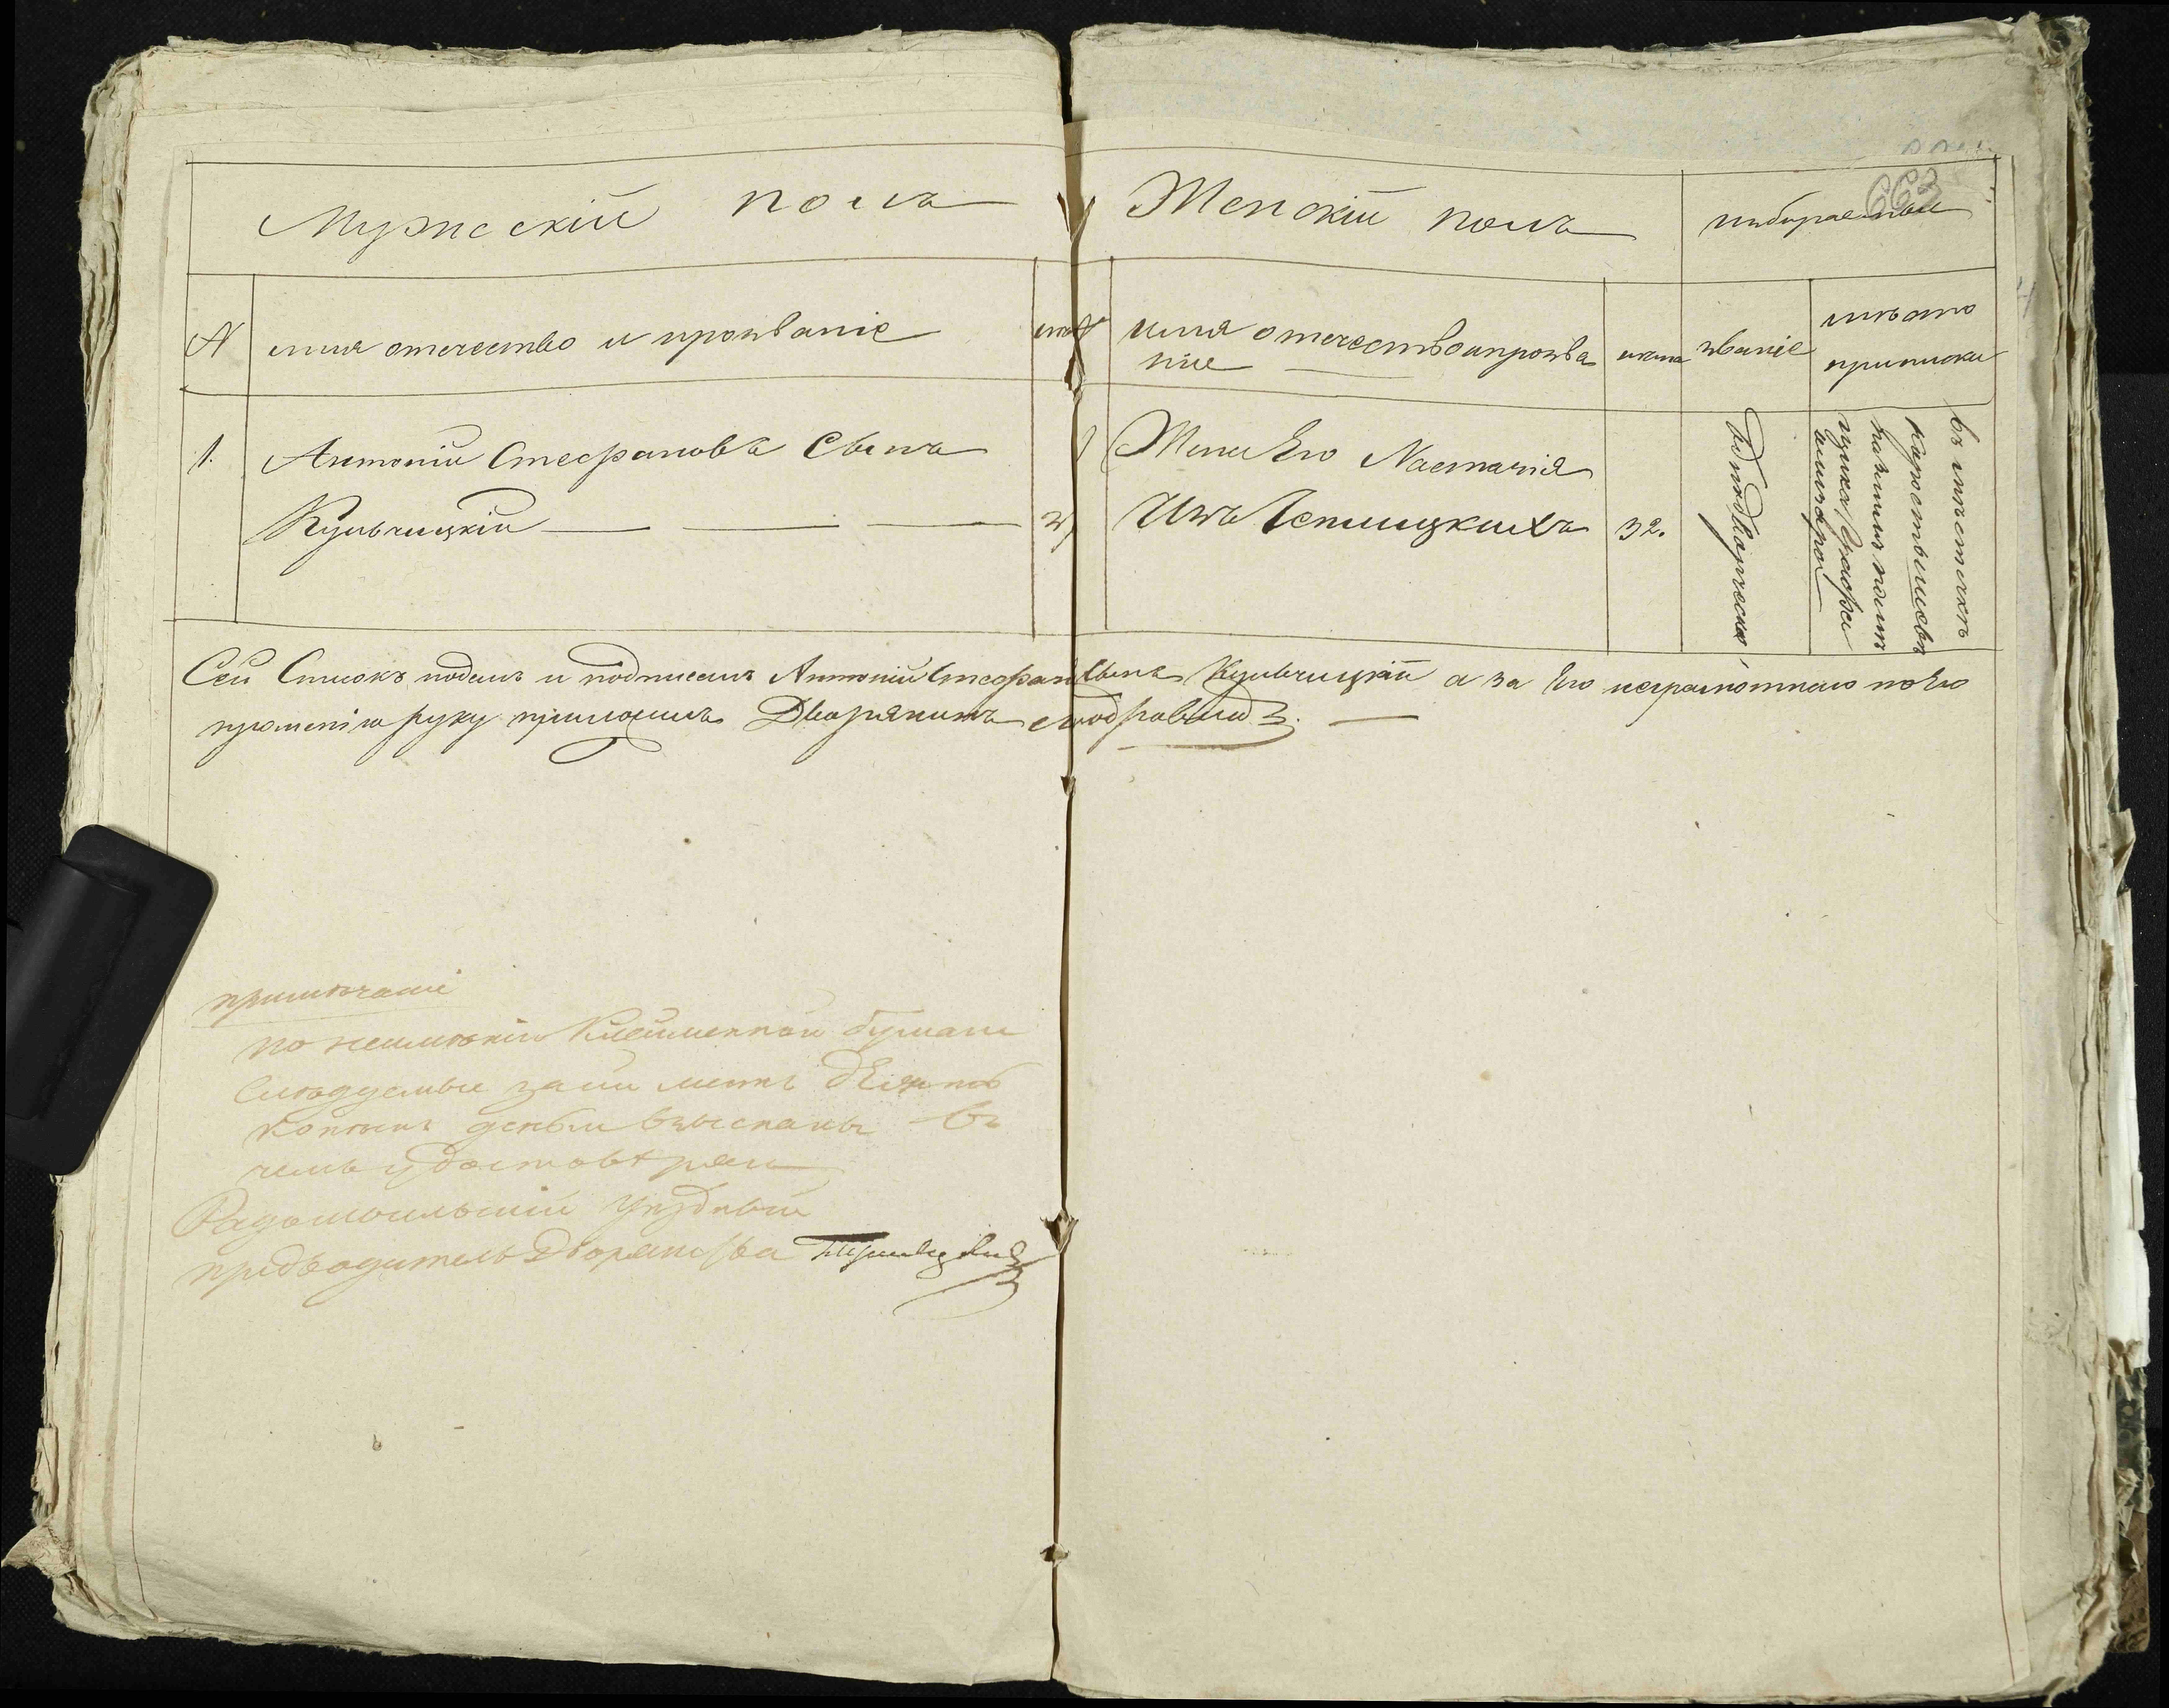 663
Мужескій полъ
Женскій полъ
избираемыи
N
имя отечество и прозваніе
лета
N
имя отечество и прозва
ніе
лета
званіе
мѣсто
приписки
1.
Антоній Стефановъ Сынъ
Кульчицкій
1
Жена Его Настасія
Изъ Чепницкихъ
32.
въ мѣстечкѣ
Коростышевѣ
помѣщика Графа
Сей Списокъ подалъ и подписалъ Антоній Стефан Сынъ Кульчицкій а за Его неграмотнаго по Его
прошенію руку приложилъ Дворянинъ
примѣчаніе
по неимѣнію Клейменной бумаги
Слѣдуемые за сіи листы
копѣекъ деньги взысканы въ
чемъ удостовѣряю
Радомысльскій Уѣздный
предводитель Дворянства